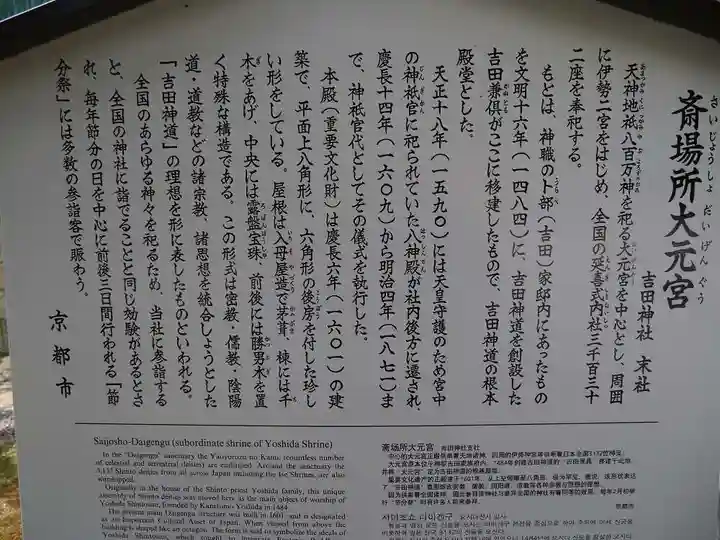 斎場所大元宮
さいじょうしょ だいげんぐう
吉田神社 末社
天神地祇八百万神を祀る大元宮を中心とし、周囲
に伊勢二宮をはじめ、全国の延喜式内社三千百三十
二座を奉祀する。
もとは、神職の卜部(吉田)家邸内にあったもの
を文明十六年(一四八四)に、吉田神道を創設した
吉田兼倶がここに移建したもので、吉田神道の根本
殿堂とした。
天正十八年(一五九〇)には天皇守護のため宮中
の神祇官に祀られていた八神殿が社内後方に遷され、
慶長十四年(一六〇九)から明治四年(一八七一)ま
で、神祇官代としてその儀式を執行した。
本殿(重要文化財)は慶長六年(一六〇一)の建
築で、平面上八角形に、六角形の後房を付した珍し
い形をしている。屋根は入母屋造で茅葺、棟には千
木をあげ、中央には露盤宝珠、前後には勝男木を置
く特殊な構造である。この形式は密教・儒教・陰陽
道・道教などの諸宗教、諸思想を統合しようとした
「吉田神道」の理想を形に表したものといわれる。
全国のあらゆる神々を祀るため、当社に参詣する
と、全国の神社に詣でることと同じ効験があるとさ
れ、毎年節分の日を中心に前後三日間行われる「節
分祭」には多数の参詣客で賑わう。
京都市
Saijosho-Daigengu (subordinate shrine of Yoshida Shrine)
In the "Daigengu" sanctuary the Yaoyorozu no Kami (countless number
of celestial and terrestrial deities) are enshrined. Around the sanctuary the
3,132 Shinto deities from all across Japan including the Ise Shrines, are also
worshipped.
Originally in the house of the Shinto priest Yoshida family, this unique
assembly of Shinto deities was moved here as the main place of worship of
Yoshida Shintoism, founded by Kanetomo Yoshida in 1484.
The present main Daigengu structure was built in 1601 and is designated
as an Important Cultural Asset of Japan. When viewed from above the
building is shaped like an octagon. The form is said to symbolize the ideals of
斎场所大元宫 吉田神社支社
사이죠쇼 다이겐구 요시다신사 말사